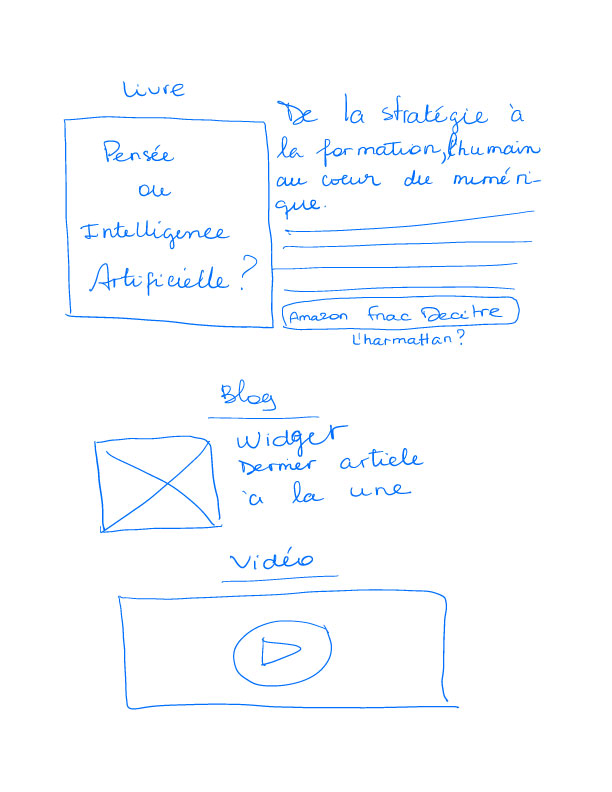 Livre
Pensée
ou
Intelligence
Artificielle ?
De la stratégie à
la formation, l'humain
au coeur du numéri-
que.
Amazon Fnac Decitre
L'harmattan ?
Blog
Widget
Dernier article
à la une
Vidéo